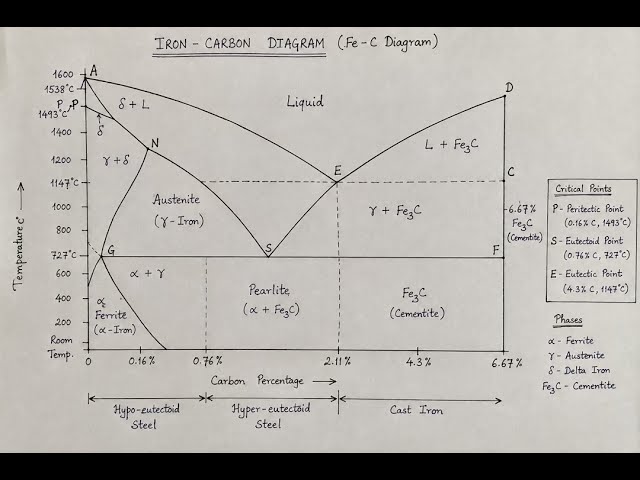 IRON - CARBON DIAGRAM (Fe-C Diagram)
1600
A
1538°C
P P
1493°C
δ
δ + L
Liquid
D
1400
N
L + Fe₃C
γ + δ
1200
E
1147°C
C
1000
Austenite
(γ-Iron)
γ + Fe₃C
6.67%
Fe₃C
(Cementite)
800
727°C
G
S
F
600
α + γ
400
α
Ferrite
(α-Iron)
Pearlite
(α + Fe₃C)
Fe₃C
(Cementite)
200
Room
Temp.
Temperature c°
0
0.16%
0.76%
2.11%
4.3%
6.67%
Carbon Percentage
Hypo-eutectoid
Steel
Hyper-eutectoid
Steel
Cast Iron
Critical Points
P - Peritectic Point
(0.16% C, 1493°C)
S - Eutectoid Point
(0.76% C, 727°C)
E - Eutectic Point
(4.3% C, 1147°C)
Phases
α - Ferrite
γ - Austenite
δ - Delta Iron
Fe₃C - Cementite